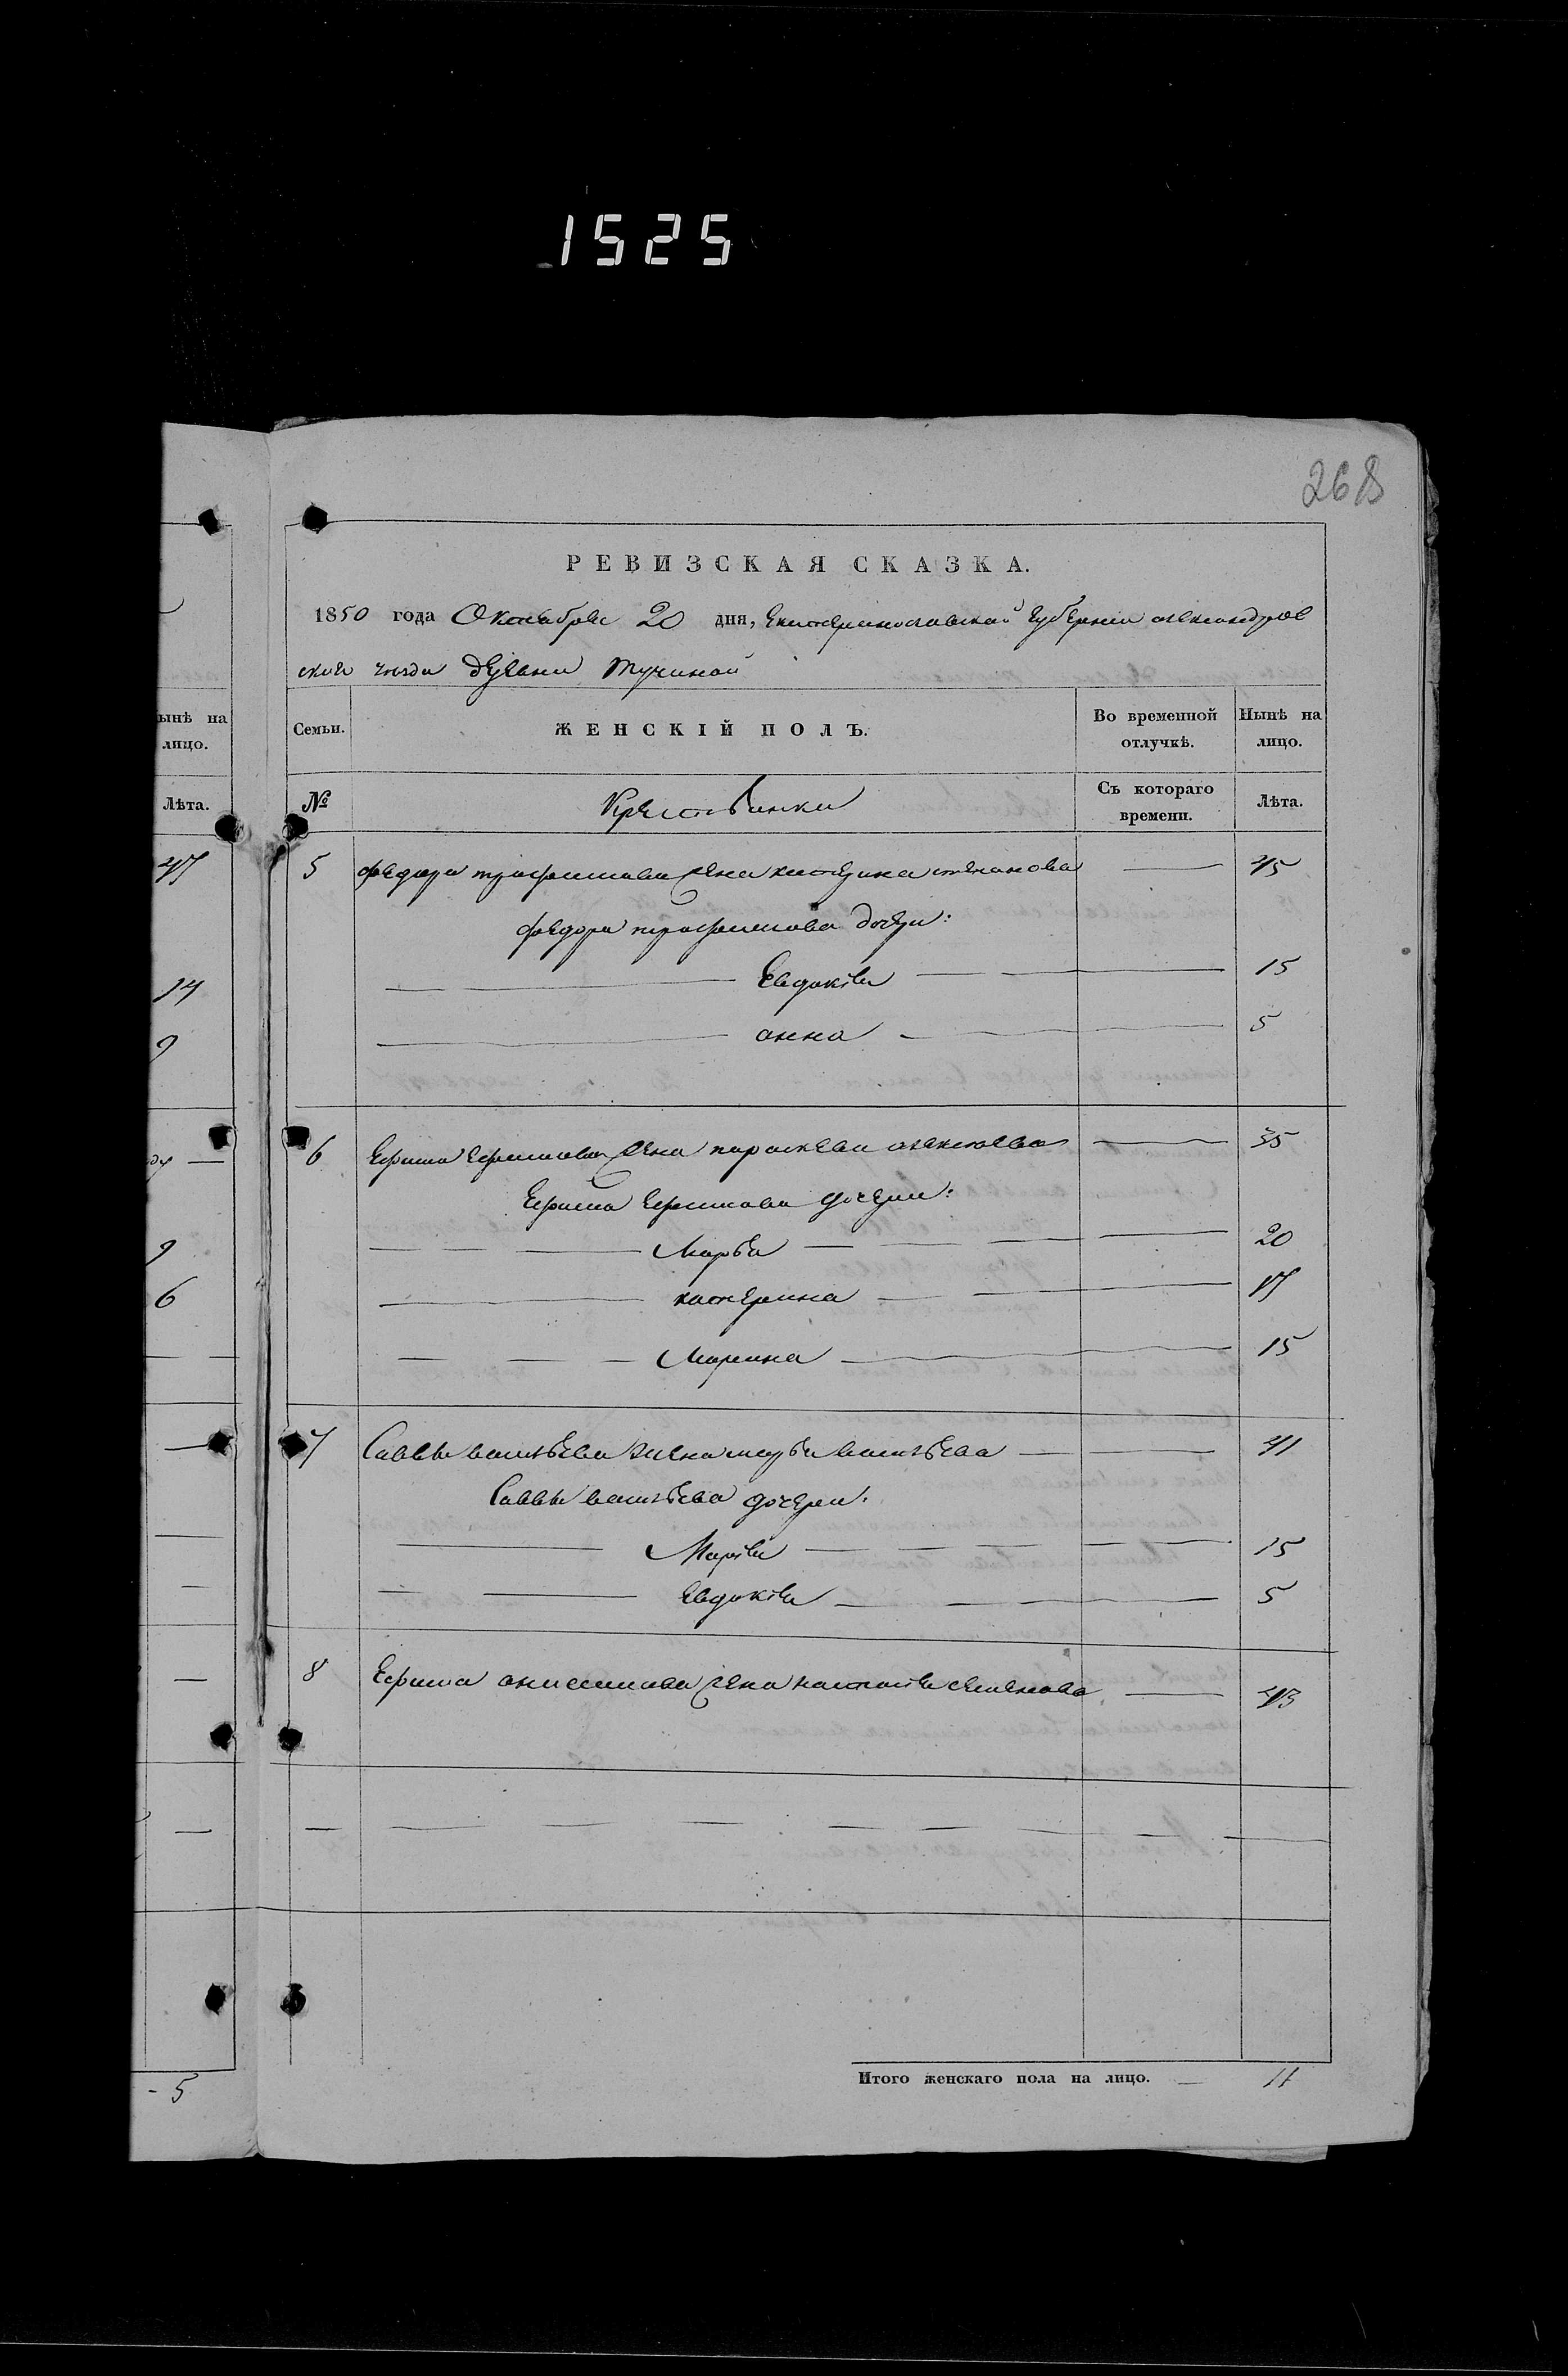 1525
268
РЕВИЗСКАЯ СКАЗКА.
1850 года Октября 20 дня, Екатеринославской губернии александров
скаго уезда деревни Тучиной
ынѣ на лицо.
Лѣта.
47
14
9
9
6
- 5
Семьи. ЖЕНСКІЙ ПОЛЪ. Во временной отлучкѣ. Нынѣ на лицо.
№ Крестьянки Съ котораго времени. Лѣта.
5 федора трофимова жена катерина степанова — 45
федора трофимова дочери:
Евдокія — 15
анна — 5
6 Ефима Ефимова жена параскевия алексеева — 35
Ефима Ефимова дочери:
Марья — 20
катерина — 17
Марина — 15
7 Саввы васильева жена марья васильева — 41
Саввы васильева дочери:
Марія — 15
Евдокія — 5
8 Ефима анисимова жена настасія семенова — 43
Итого женскаго пола на лицо. — 11